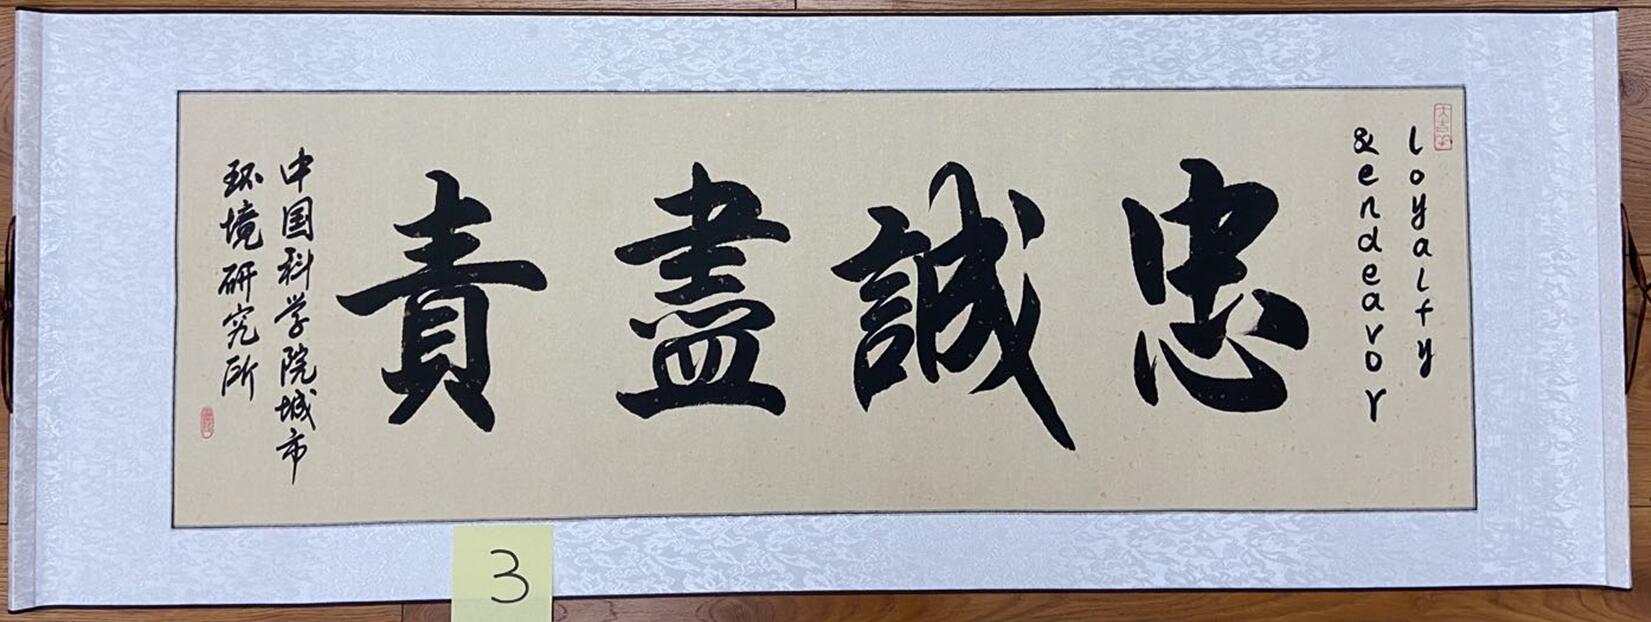 loyalty
&endeavor
忠誠盡責
中国科学院城市
环境研究所
3